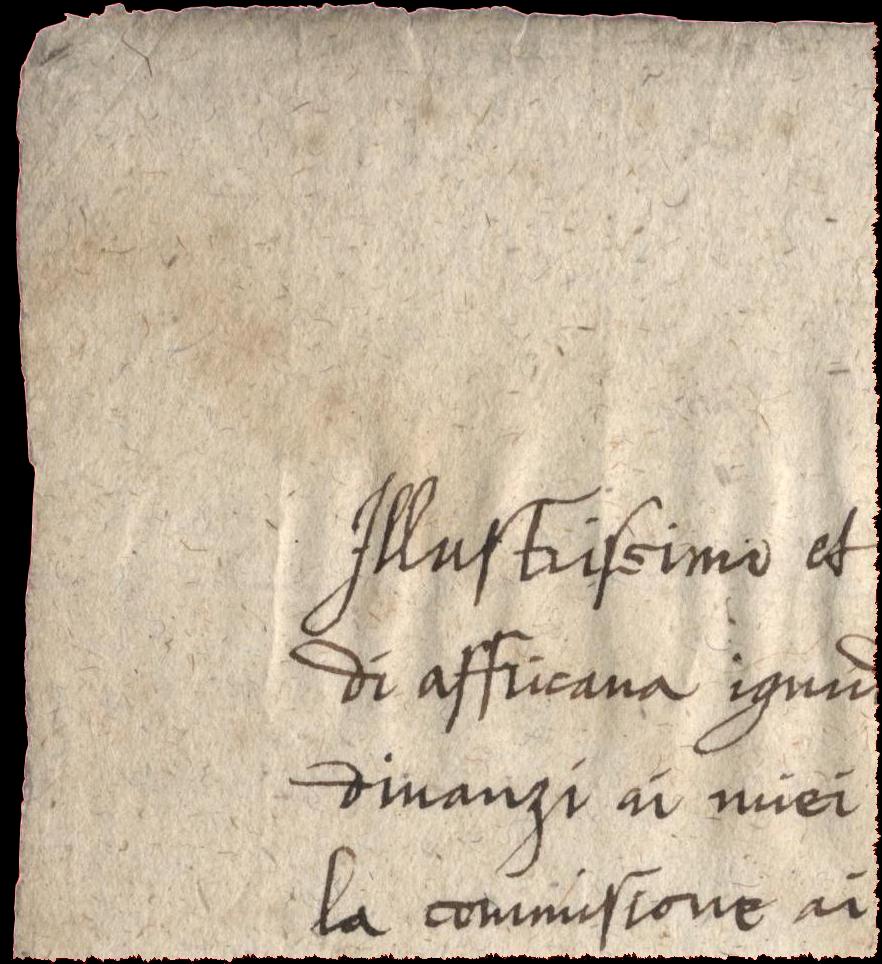 Illustrissimo et
di affricana ignud
dinanzi ai miei
la commissione ai